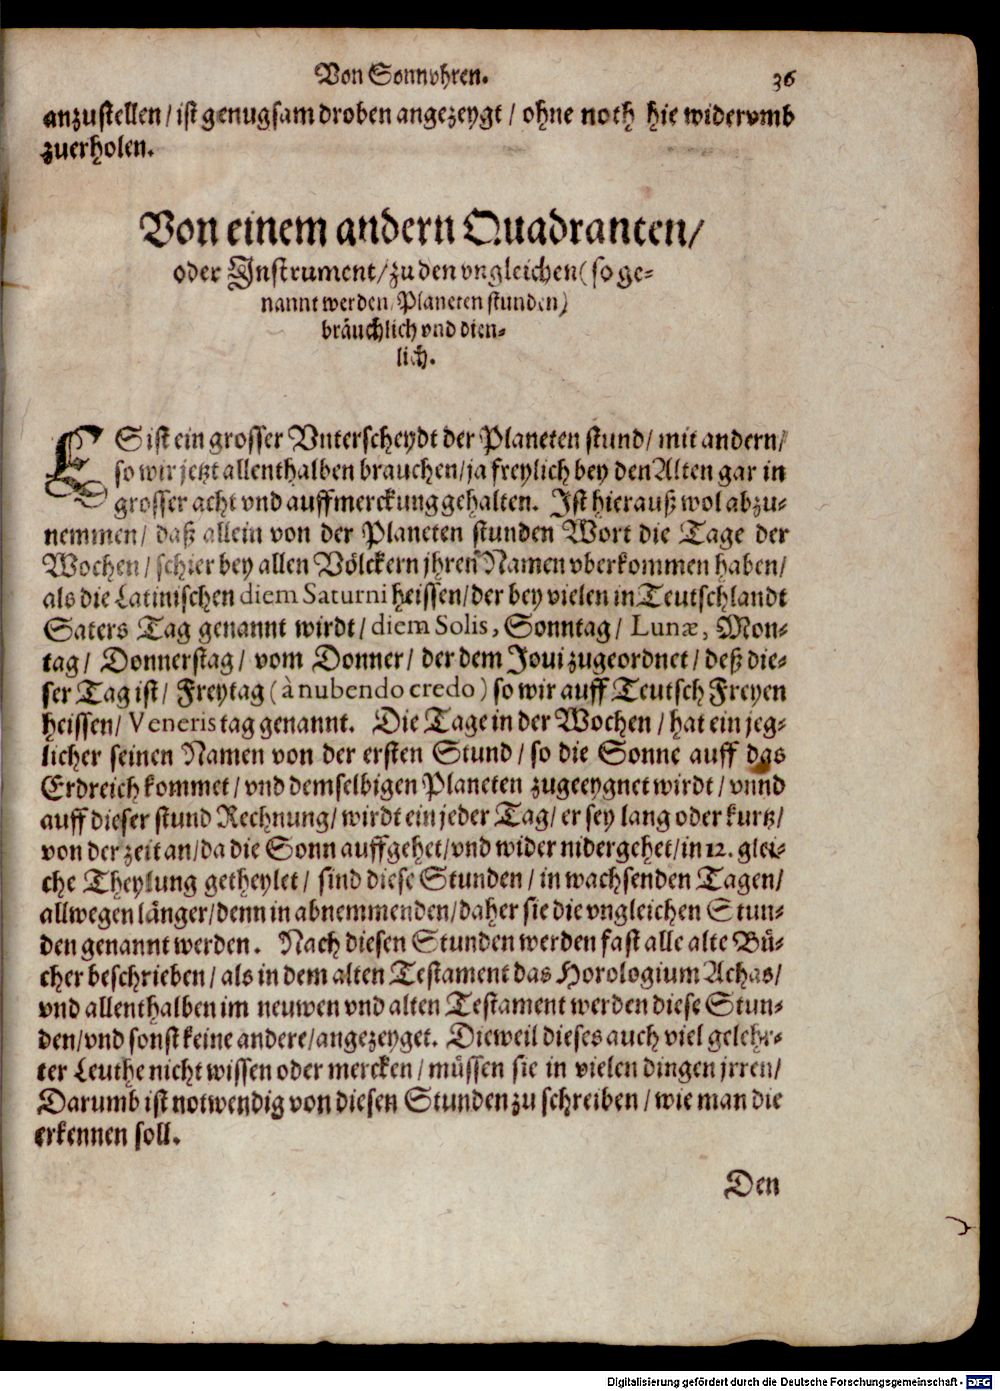 Von Sonnuhren. 36
anzustellen/ ist genugsam droben angezeygt/ ohne noth hie widerumb
zuerholen.
Von einem andern Quadranten/
oder Instrument/ zu den vngleichen (so ge-
nannt werden/ Planeten stunden)
bräuchlich vnd dien-
lich.
ES ist ein grosser Vnterscheydt der Planeten stund/ mit andern/
so wir jetzt allenthalben brauchen/ ja freylich bey den Alten gar in
grosser acht vnd auffmerckung gehalten. Ist hierauß wol abzu-
nemmen/ daß allein von der Planeten stunden Wort die Tage der
Wochen/ schier bey allen Völckern jhren Namen vberkommen haben/
als die Latinischen diem Saturni heissen/ der bey vielen in Teutschlandt
Saters Tag genannt wirdt/ diem Solis, Sonntag/ Lunæ, Mon-
tag/ Donnerstag/ vom Donner/ der dem Joui zugeordnet/ deß die-
ser Tag ist/ Freytag (à nubendo credo) so wir auff Teutsch Freyen
heissen/ Veneris tag genannt. Die Tage in der Wochen/ hat ein jeg-
licher seinen Namen von der ersten Stund/ so die Sonne auff das
Erdreich kommet/ vnd demselbigen Planeten zugeeygnet wirdt/ vnnd
auff dieser stund Rechnung/ wirdt ein jeder Tag/ er sey lang oder kurtz/
von der zeit an/ da die Sonn auffgehet/ vnd wider nidergehet/ in 12. glei-
che Theylung getheylet/ sind diese Stunden/ in wachsenden Tagen/
allwegen länger/ denn in abnemmenden/ daher sie die vngleichen Stun-
den genannt werden. Nach diesen Stunden werden fast alle alte Bü-
cher beschrieben/ als in dem alten Testament das Horologium Achas/
vnd allenthalben im neuwen vnd alten Testament werden diese Stun-
den/ vnd sonst keine andere/ angezeyget. Dieweil dieses auch viel gelehr-
ter Leuthe nicht wissen oder mercken/ müssen sie in vielen dingen jrren/
Darumb ist notwendig von diesen Stunden zu schreiben/ wie man die
erkennen soll.
Den
Digitalisierung gefördert durch die Deutsche Forschungsgemeinschaft - DFG